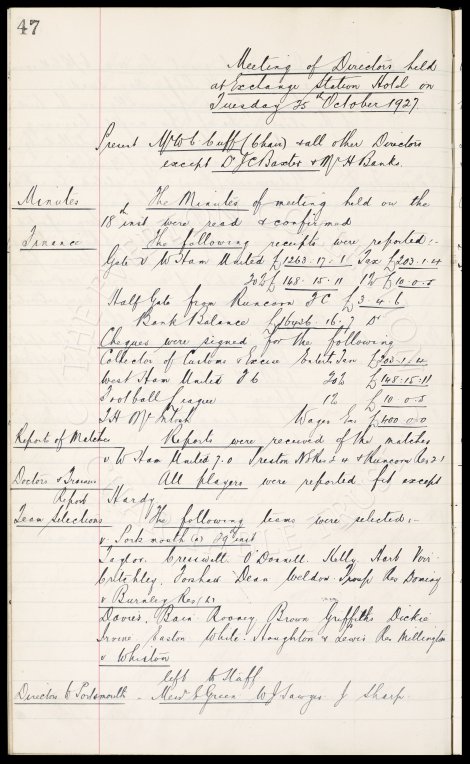 47
Meeting of Directors held
at Exchange Station Hotel on
Tuesday 25th October 1927
Present Mr W C Cuff (Chair) & all other Directors
except Dr J C Baxter & Mr H Banks.
Minutes The Minutes of meeting held on the
18th inst were read & confirmed
Finance The following receipts were reported:-
Gate v W Ham United £1263.17.1 Tax £203.1.4
20% £148.15.11 1% £10.0.5
Half Gate from Runcorn FC £3.4.6
Bank Balance £16436.16.7 Dr
Cheques were signed for the following
Collector of Customs & Excise Entert Tax £203.1.4
West Ham United FC 20% £148.15.11
Football League 1% £10.0.5
T H McIntosh Wages Ec £400.0.0
Report of Matches Reports were received of the matches
v W Ham United 7.0 Preston NE Res 3.4 & Runcorn Res 2.1
Doctors & Trainers All players were reported fit except
Report Hardy
Team Selections The following teams were selected:-
v Portsmouth (a) 29th inst
Taylor. Cresswell. O'Donnell. Kelly Hart Virr.
Critchley. Forshaw Dean Weldon Troup Res Dominy
v Burnley Res (h)
Davies. Bain. Rooney. Brown Griffiths Dickie
Irvine Easton White. Houghton & Lewis Res Millington
v Whiston
left to Staff
Directors to Portsmouth - Messrs E Green W J Sawyer J Sharp.